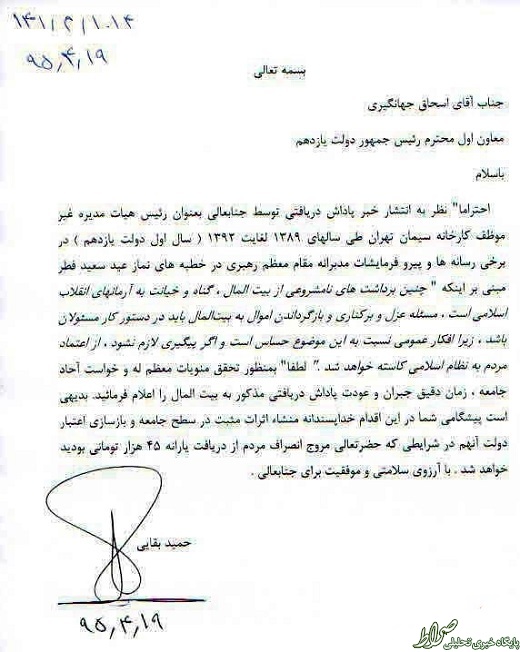 ۱۴۱/م/۱۰۱۴
۹۵,۴,۱۹
بسمه تعالی
جناب آقای اسحاق جهانگیری
معاون اول محترم رئیس جمهور دولت یازدهم
باسلام
احتراما" نظر به انتشار خبر پاداش دریافتی توسط جنابعالی بعنوان رئیس هیات مدیره غیر
موظف کارخانه سیمان تهران طی سالهای ۱۳۸۹ لغایت ۱۳۹۲ ( سال اول دولت یازدهم ) در
برخی رسانه ها و پیرو فرمایشات مدبرانه مقام معظم رهبری در خطبه های نماز عید سعید فطر
مبنی بر اینکه " چنین برداشت های نامشروعی از بیت المال ، گناه و خیانت به آرمانهای انقلاب
اسلامی است ، مسئله عزل و برکناری و بازگرداندن اموال به بیت‌المال باید در دستور کار مسئولان
باشد ، زیرا افکار عمومی نسبت به این موضوع حساس است و اگر پیگیری لازم نشود ، از اعتماد
مردم به نظام اسلامی کاسته خواهد شد ." لطفا" بمنظور تحقق منویات معظم له و خواست آحاد
جامعه ، زمان دقیق جبران و عودت پاداش دریافتی مذکور به بیت المال را اعلام فرمائید. بدیهی
است پیشگامی شما در این اقدام خداپسندانه منشاء اثرات مثبت در سطح جامعه و بازسازی اعتبار
دولت آنهم در شرایطی که حضرتعالی مروج انصراف مردم از دریافت یارانه ۴۵ هزار تومانی بودید
خواهد شد . با آرزوی سلامتی و موفقیت برای جنابعالی .
حمید بقایی
۹۵,۴,۱۹
صراط
پایگاه خبری تحلیلی